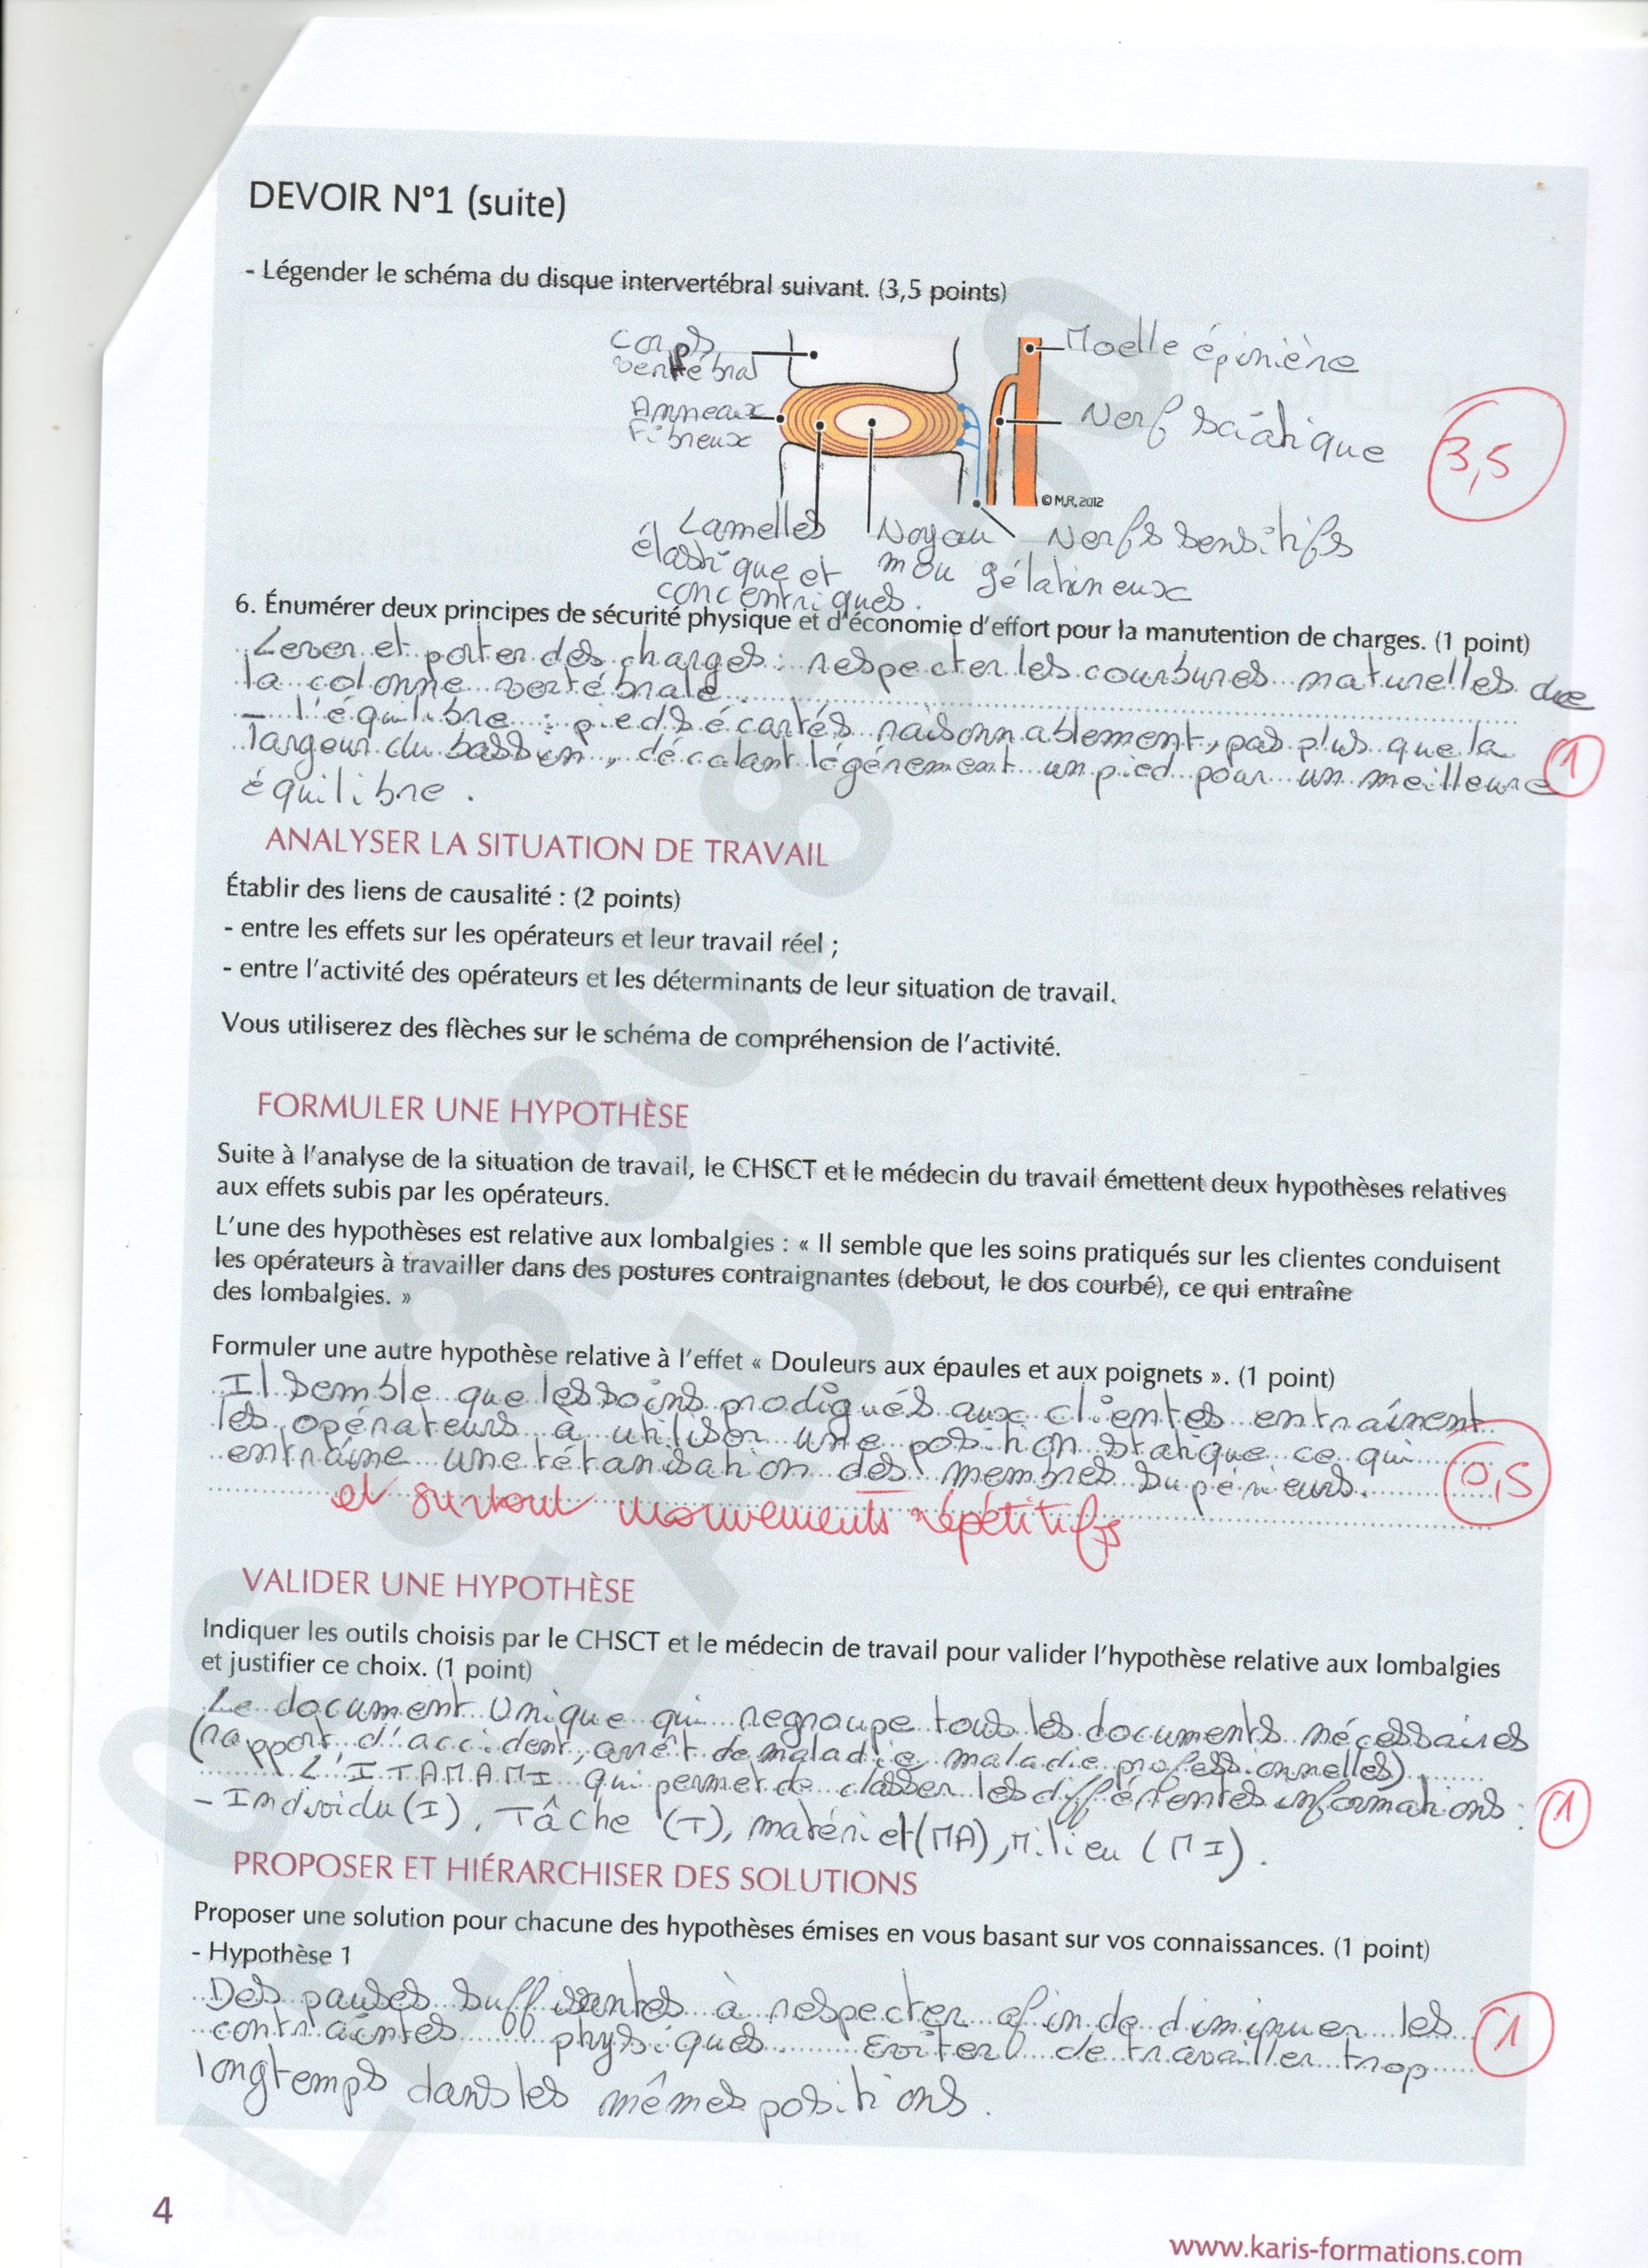 DEVOIR N°1 (suite)
- Légender le schéma du disque intervertébral suivant. (3,5 points)
Corps
vertébral
Moelle épinière
Anneaux
Fibreux
Nerf sciatique
3,5
©M.R. 2012
Lamelles
élastique et
concentriques.
Noyau
mou gélatineux
Nerfs sensitifs
6. Énumérer deux principes de sécurité physique et d'économie d'effort pour la manutention de charges. (1 point)
Lever et porter des charges : respecter les courbures naturelles de
la colonne vertébrale.
- l'équilibre : pieds écartés raisonnablement, pas plus que la
largeur du bassin, décalant légèrement un pied pour un meilleure
équilibre.
1
ANALYSER LA SITUATION DE TRAVAIL
Établir des liens de causalité : (2 points)
- entre les effets sur les opérateurs et leur travail réel ;
- entre l'activité des opérateurs et les déterminants de leur situation de travail.
Vous utiliserez des flèches sur le schéma de compréhension de l'activité.
FORMULER UNE HYPOTHÈSE
Suite à l'analyse de la situation de travail, le CHSCT et le médecin du travail émettent deux hypothèses relatives
aux effets subis par les opérateurs.
L'une des hypothèses est relative aux lombalgies : « Il semble que les soins pratiqués sur les clientes conduisent
les opérateurs à travailler dans des postures contraignantes (debout, le dos courbé), ce qui entraîne
des lombalgies. »
Formuler une autre hypothèse relative à l'effet « Douleurs aux épaules et aux poignets ». (1 point)
Il semble que les soins prodigués aux clientes entraînent
les opérateurs a utiliser une position statique ce qui
entraîne une tétanisation des membres supérieurs.
0,5
et surtout mouvements répétitifs
VALIDER UNE HYPOTHÈSE
Indiquer les outils choisis par le CHSCT et le médecin de travail pour valider l'hypothèse relative aux lombalgies
et justifier ce choix. (1 point)
Le document Unique qui regroupe tous les documents nécessaires
(rapport d'accident, arrêt de maladie, maladie professionnelles)
L'ITAMAMI qui permet de classer les différentes informations :
- Individu (I), Tâche (T), matériel (MA), Milieu (MI).
1
PROPOSER ET HIÉRARCHISER DES SOLUTIONS
Proposer une solution pour chacune des hypothèses émises en vous basant sur vos connaissances. (1 point)
- Hypothèse 1
Des pauses suffisantes à respecter afin de diminuer les
contraintes physiques. Eviter de travailler trop
longtemps dans les mêmes positions.
1
4
www.karis-formations.com